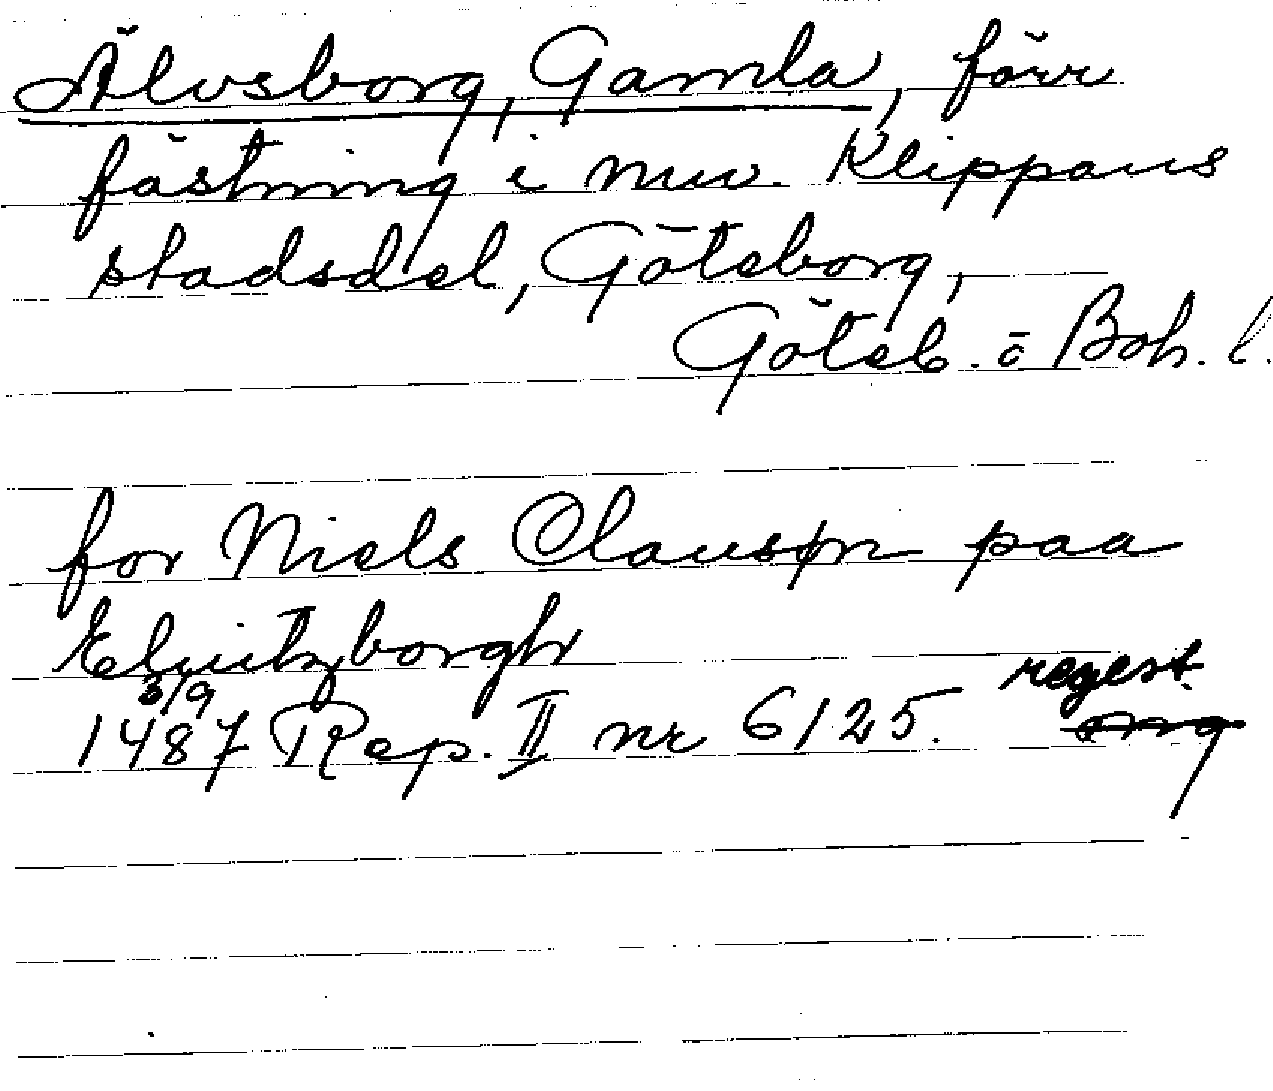 Älvsborg, Gamla, förr
fästning i nuv. Klippans
stadsdel, Göteborg,
Göteb. o Boh. l.
for Niels Clausøn paa
Eluitzborgh
3/9 regest.
1487 Rep. II nr 6125. orig